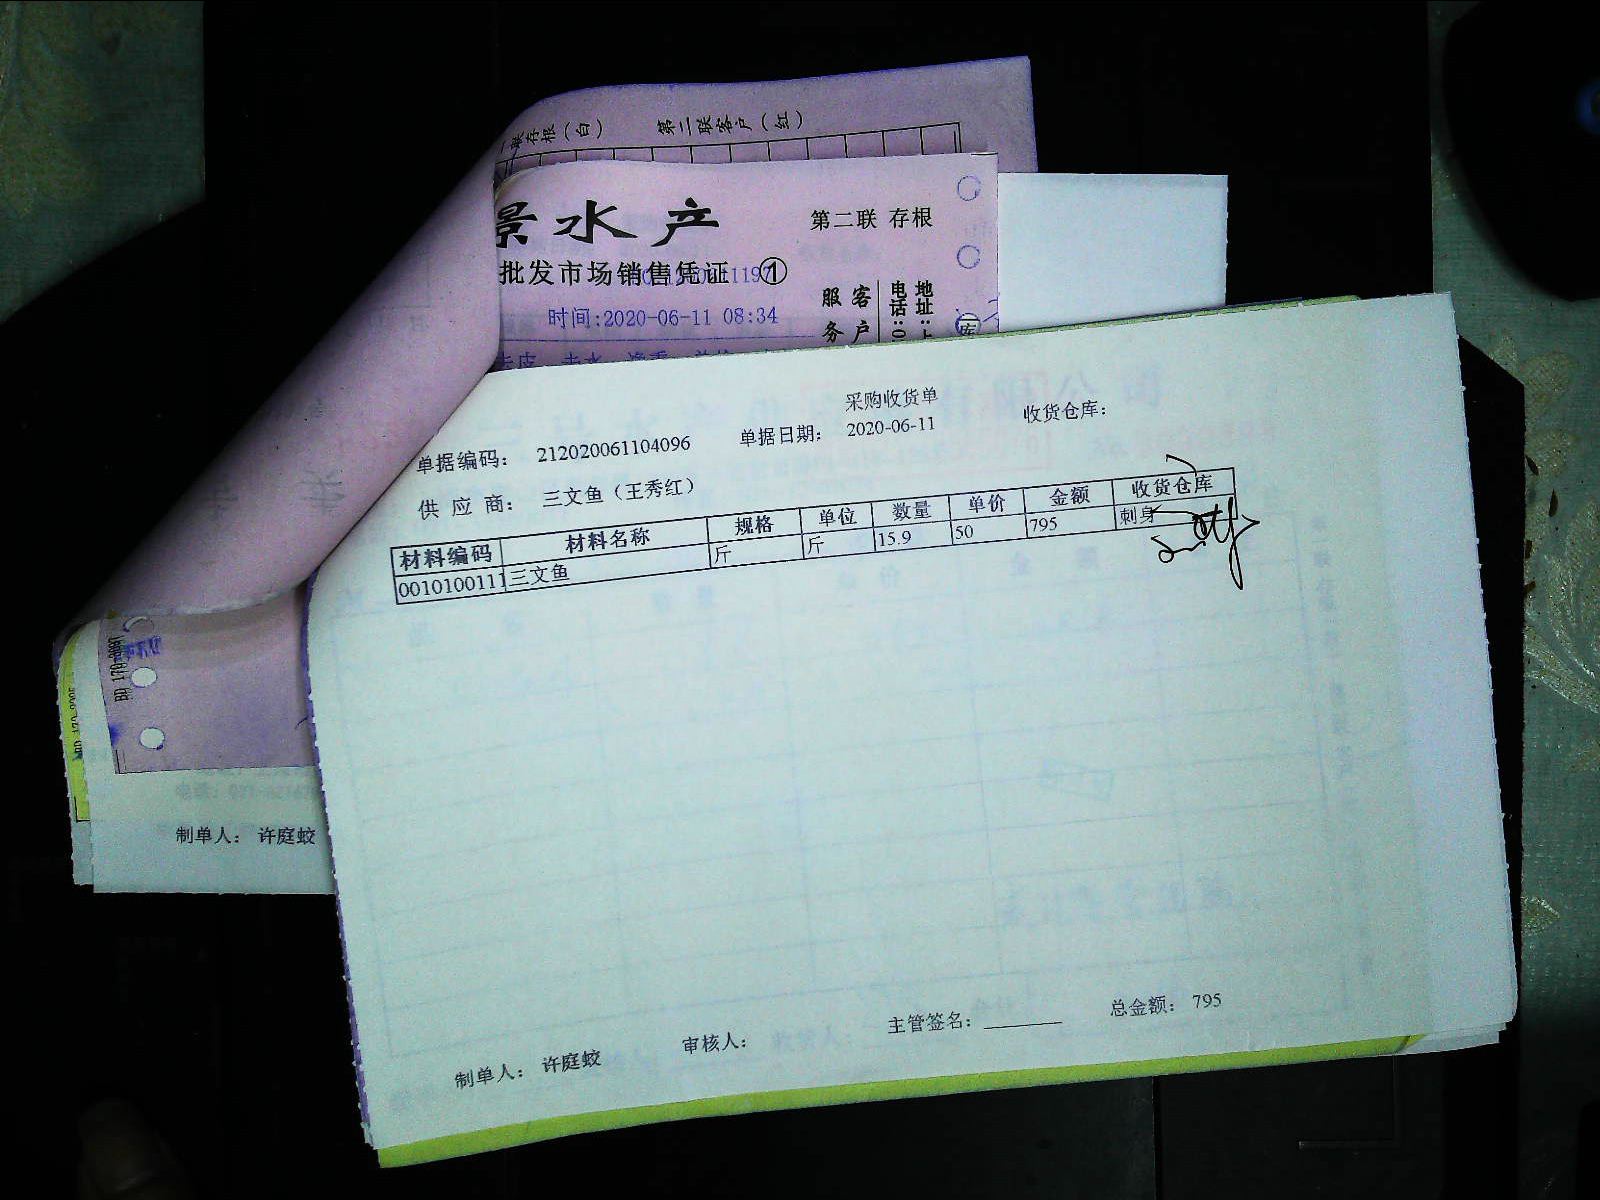 联存根（白） 第二联客户（红）
景水产
第二联 存根
批发市场销售凭证 ①
时间:2020-06-11 08:34
客户
服务
地址:上
电话:0
采购收货单
单据编码： 212020061104096 单据日期： 2020-06-11 收货仓库：
供应商： 三文鱼（王秀红）
材料编码 材料名称 规格 单位 数量 单价 金额 收货仓库
0010100111 三文鱼 斤 斤 15.9 50 795 刺身
制单人： 许庭蛟
制单人： 许庭蛟 审核人： 主管签名： 总金额： 795